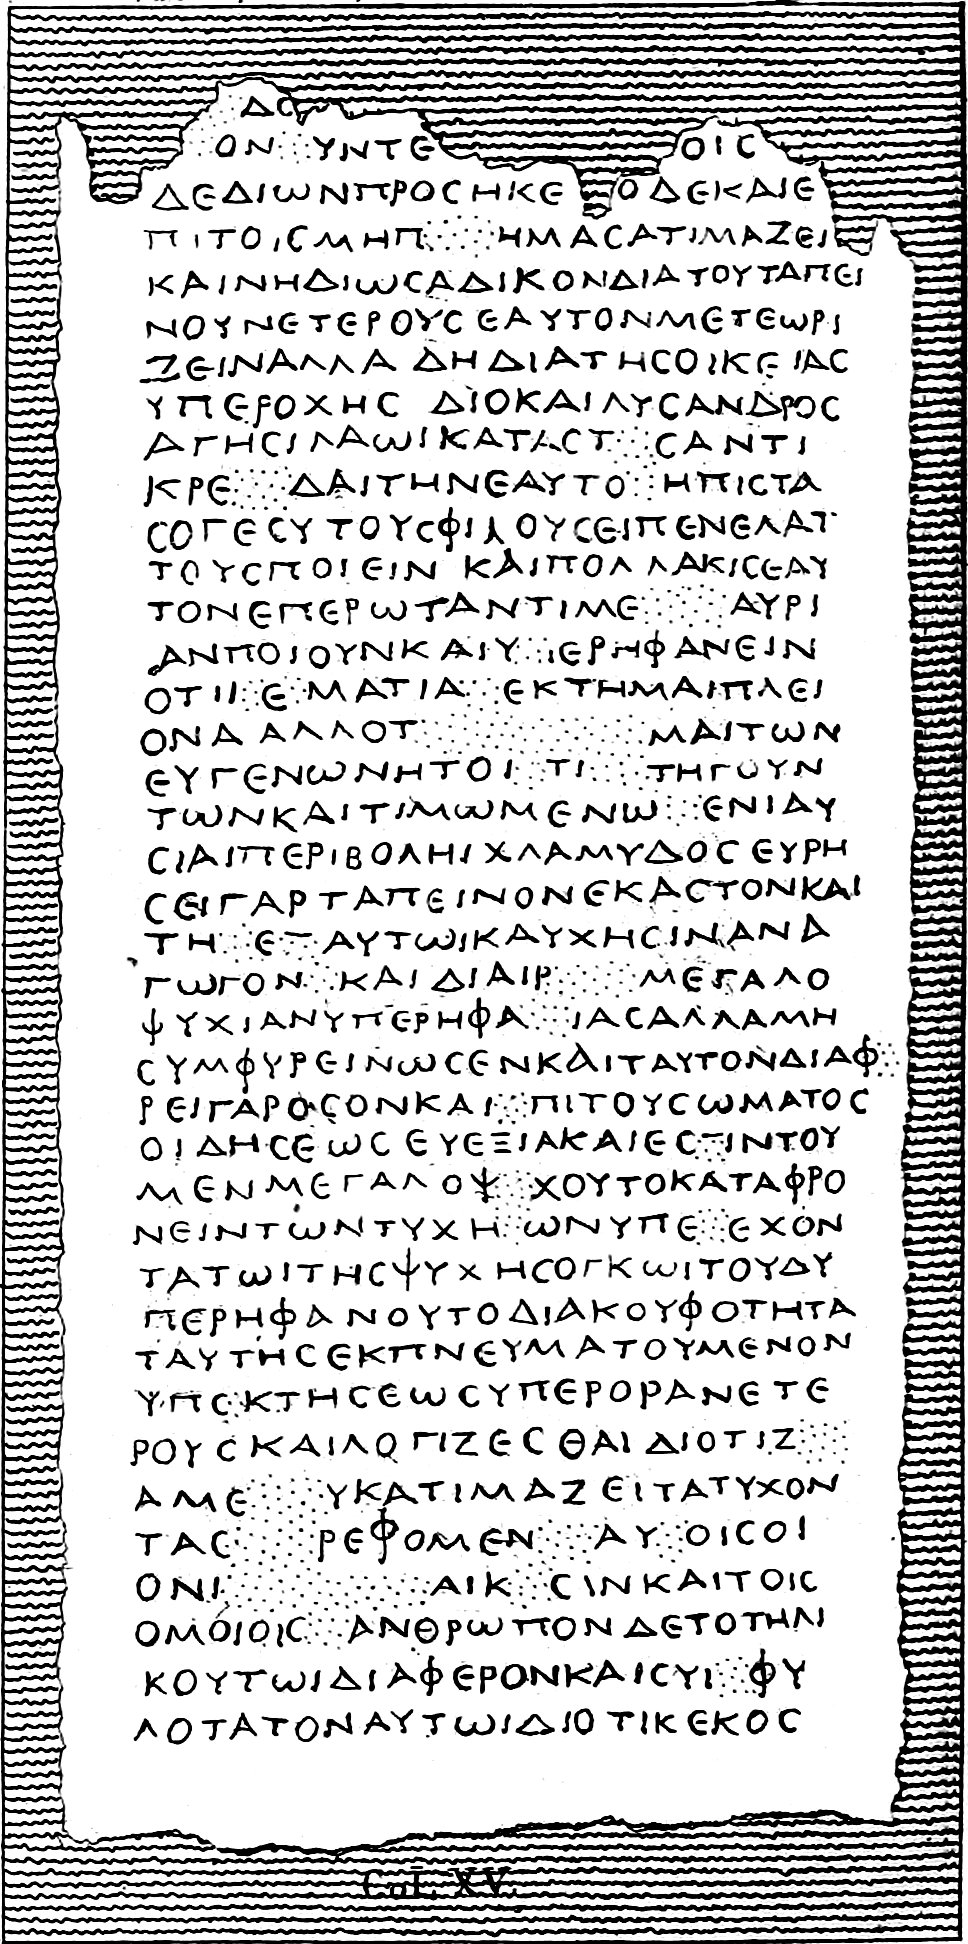 ΔC
ΟΝ ΥΝΤΕ ΟΙC
ΔΕΔΙΩΝΠΡΟCΗΚΕ ΟΔΕΚΑΙΕ
ΠΙΤΟΙCΜΗΠ ΗΜΑCΑΤΙΜΑΖΕΙ
ΚΑΙΝΗΔΙΩCΑΔΙΚΟΝΔΙΑΤΟΥΤΑΠΕΙ
ΝΟΥΝΕΤΕΡΟΥCΕΑΥΤΟΝΜΕΤΕΩΡΙ
ΖΕΙΝΑΛΛΑ ΔΗΔΙΑΤΗCΟΙΚΕΙΑC
ΥΠΕΡΟΧΗC ΔΙΟΚΑΙΛΥCΑΝΔΡΟC
ΑΓΗCΙΛΑΩΙΚΑΤΑCΤ CΑΝΤΙ
ΚΡΕ ΔΑΙΤΗΝΕΑΥΤΟ ΗΠΙCΤΑ
CΟΓΕCΥΤΟΥCΦΙΛΟΥCΕΙΠΕΝΕΛΑΤ
ΤΟΥCΠΟΙΕΙΝ ΚΑΙΠΟΛΛΑΚΙCΕΑΥ
ΤΟΝΕΠΕΡΩΤΑΝΤΙΜΕ ΑΥΡΙ
ΑΝΠΟΙΟΥΝΚΑΙΥ ΙΕΡΗΦΑΝΕΙΝ
ΟΤΙΙ Ε ΜΑΤΙΑ ΕΚΤΗΜΑΙΠΛΕΙ
ΟΝΑ ΑΛΛΟΤ ΜΑΙΤΩΝ
ΕΥΓΕΝΩΝΗΤΟΙ ΤΙ ΤΗΓΟΥΝ
ΤΩΝΚΑΙΤΙΜΩΜΕΝΩ ΕΝΙΑΥ
CΙΑΙΠΕΡΙΒΟΛΗΙΧΛΑΜΥΔΟCΕΥΡΗ
CΕΙΓΑΡΤΑΠΕΙΝΟΝΕΚΑCΤΟΝΚΑΙ
ΤΗ Ε ΑΥΤΩΙΚΑΥΧΗCΙΝΑΝΑ
ΓΩΓΟΝ ΚΑΙΔΙΑΙΡ ΜΕΓΑΛΟ
ΨΥΧΙΑΝΥΠΕΡΗΦΑ ΙΑCΑΛΛΑΜΗ
CΥΜΦΥΡΕΙΝΩCΕΝΚΑΙΤΑΥΤΟΝΔΙΑΦ
ΡΕΙΓΑΡΟCΟΝΚΑΙ ΠΙΤΟΥCΩΜΑΤΟC
ΟΙΔΗCΕΩCΕΥΕΞΙΑΚΑΙΕCΤΙΝΤΟΥ
ΜΕΝΜΕΓΑΛΟΨ ΧΟΥΤΟΚΑΤΑΦΡΟ
ΝΕΙΝΤΩΝΤΥΧΗ ΩΝΥΠΕ ΕΧΟΝ
ΤΑΤΩΙΤΗCΨΥΧΗCΟΓΚΩΙΤΟΥΔΥ
ΠΕΡΗΦΑΝΟΥΤΟΔΙΑΚΟΥΦΟΤΗΤΑ
ΤΑΥΤΗCΕΚΠΝΕΥΜΑΤΟΥΜΕΝΟΝ
ΥΠCΚΤΗCΕΩCΥΠΕΡΟΡΑΝΕΤΕ
ΡΟΥCΚΑΙΛΟΓΙΖΕCΘΑΙΔΙΟΤΙΖ
ΑΜΕ ΥΚΑΤΙΜΑΖΕΙΤΑΤΥΧΟΝ
ΤΑC ΡΕΦΟΜΕΝ ΑΥ ΟΙCΟΙ
ΟΝΙ ΑΙΚ CΙΝΚΑΙΤΟΙC
ΟΜΟΙΟΙC ΑΝΘΡΩΠΟΝΔΕΤΟΤΗΛΙ
ΚΟΥΤΩΙΔΙΑΦΕΡΟΝΚΑΙCΥΙ ΦΥ
ΛΟΤΑΤΟΝΑΥΤΩΙΔΙΟΤΙΚΕΚΟC
Col. XV.